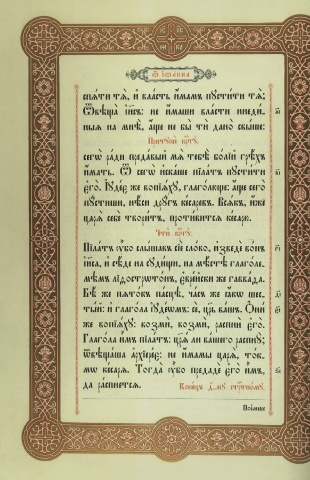 Ѿ іѡанна
спѧти тѧ̀, и҆ вла́сть и҆́мамъ пꙋсти́ти тѧ̀;
Ѿвѣща̀ і҆и҃съ: не и҆́маши вла́сти ни є҆ди́-
ныѧ на мнѣ̀, а҆́ще не бы̀ тѝ дано̀ свы́ше:
сегѡ̀ ра́ди преда́вый мѧ̀ тебѣ̀ бо́лїй грѣ́хъ
и҆́мать. Ѿ сегѡ̀ и҆ска́ше пїла́тъ пꙋсти́ти
є҆го̀. І҆ꙋде́є же вопїѧ́хꙋ, глаго́люще: а҆́ще сего̀
пꙋ́стиши, нѣ́си дрꙋ́гъ ке́саревъ. Всѧ́къ, и҆́же
царѧ̀ себѐ твори́тъ, проти́витсѧ ке́сарю.
Пїла́тъ ᲂу҆̀бо слы́шавъ сїѐ сло́во, и҆зведѐ во́нъ
і҆и҃са, и҆ сѣ́де на сꙋди́щи, на мѣ́стѣ глаго́ле-
мѣмъ лїѳостро́тонъ, є҆вре́йски же гавва́ѳа.
Бѣ́ же пѧто́къ па́сцѣ, ча́съ же ꙗ҆́кѡ шес-
ты́й: и҆ глаго́ла і҆ꙋде́ѡмъ: сѐ, цр҃ь ва́шъ. Ѻ҆ни́
же вопїѧ́хꙋ: возмѝ, возмѝ, распнѝ є҆го̀.
Глаго́ла и҆̀мъ пїла́тъ: цр҃ѧ́ ли ва́шего распнꙋ̀;
ѿвѣща́ша а҆рхїере́є: не и҆́мамы царѧ̀, то́к-
мѡ ке́сарѧ. Тогда̀ ᲂу҆̀бо предадѐ є҆го̀ и҆̀мъ,
да ра́спнетсѧ.
Пое́мше